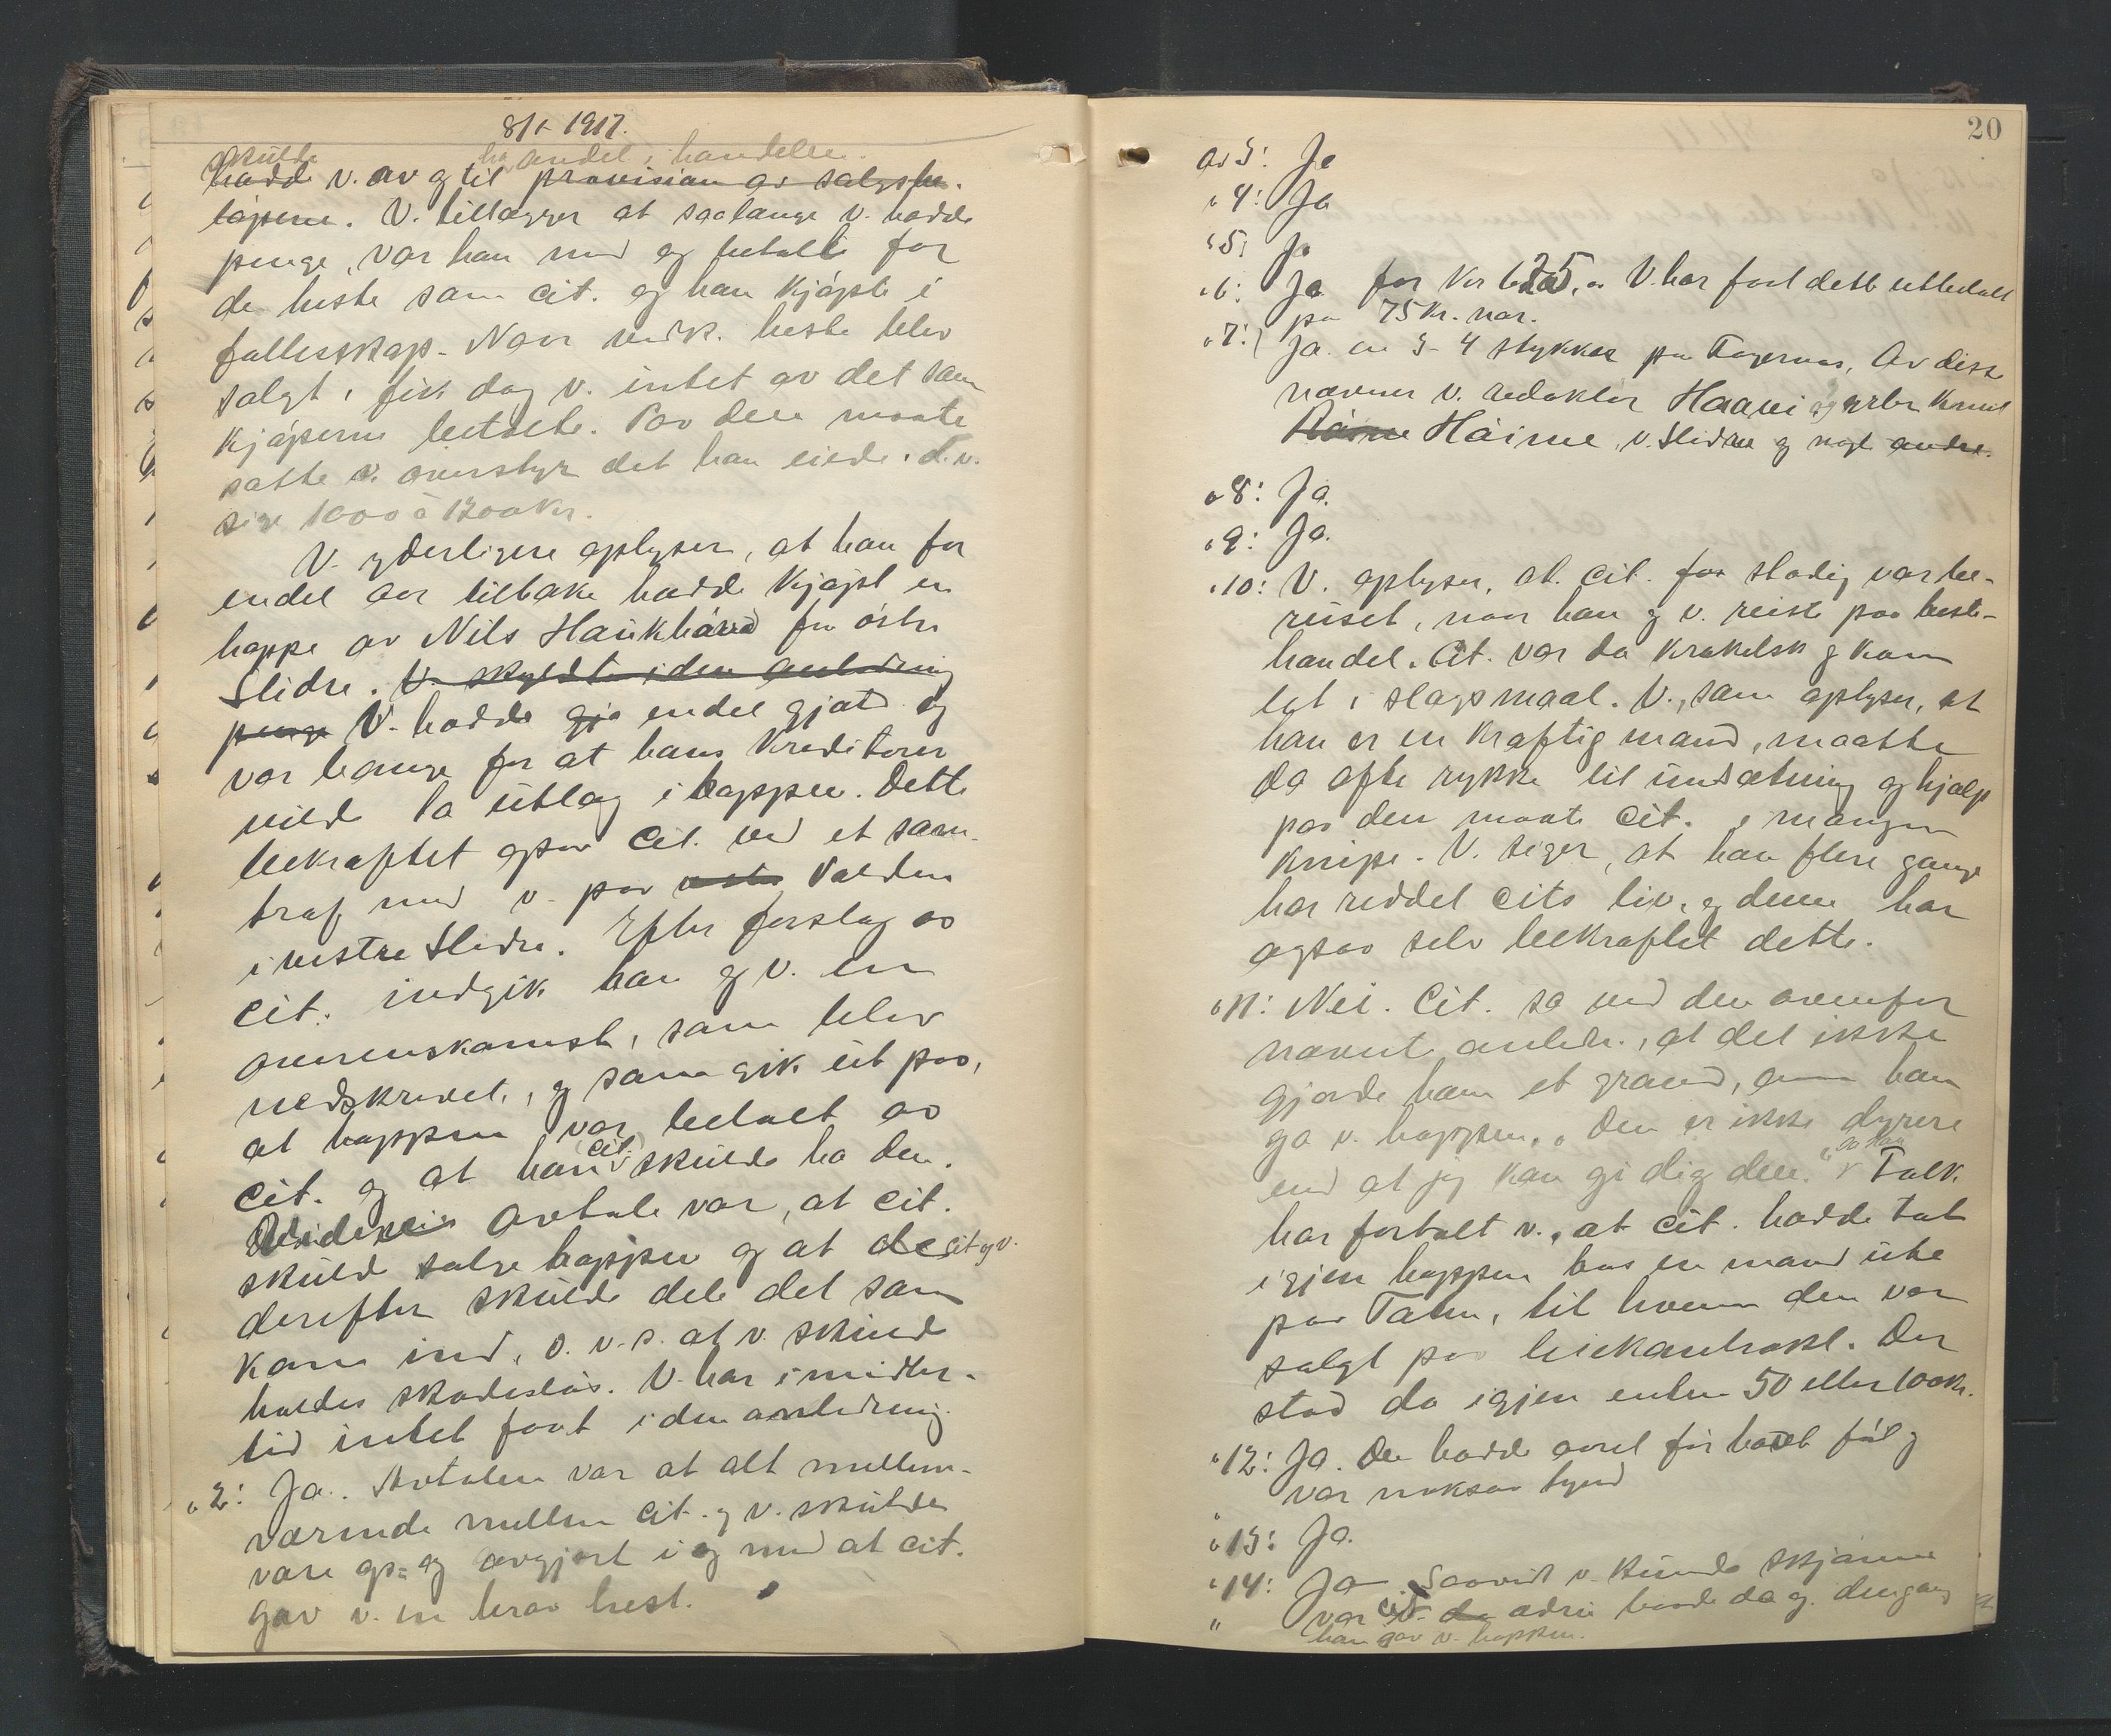 8/1 1917.
skulde ha andel i handelen.
hadde v. av og til provision av salgsbe-
løpene. V. tillægger at saalange v. hadde
penge, var han med og betalte for
de heste som cit. og han kjøpte i
fællesskap. Naar vedk. heste blev
solgt, fik dog v. intet av det som
kjøperne betalte. Paa den maate
satte v. overstyr det han eiede, d.v.
sige 1000 à 1200 kr.
V. yderligere oplyser, at han for
endel aar tilbake hadde kjøpt en
hoppe av Nils Haukhärad fra østre
Slidre. V. skyldte i den anledning
penge V. hadde gje endel gjæld og
var bange for at hans kreditorer
vilde ta utlæg i hoppen. Dette
bekræftet ogsaa cit. ved et sam-
træf med v. paa vestre Valden
i vestre Slidre. Efter forslag av
cit. indgik han og v. en
overenskomst, som blev
nedskrevet, og som gik ut paa,
at hoppen var betalt av
cit. og at han (cit.) skulde ha den.
Avtale var, at cit.
skulde sælge hoppen og at de cit og v.
derefter skulde dele det som
kom ind, d.v.s. at v. skulde
holdes skadesløs. V. har imidler-
tid intet faat i den anledning.
" 2: Ja. Avtalen var at alt mellem-
værende mellem cit. og v. skulde
være op- og avgjort i og med at cit.
gav v. en brav hest.
20
ad 3: Ja
" 4: Ja
" 5: Ja
" 6: Ja for kr 625, V. har faat dette utbetalt
paa 75 kr. nær.
" 7: Ja en 3-4 stykker paa Fagernæs. Av disse
nævner v. redaktør Haavi og Knut
Häime, v. Slidre og nogle andre.
" 8: Ja.
" 9: Ja.
" 10: V. oplyser, at cit. for stadig var be-
ruset, naar han og v. reiste paa heste-
handel. Cit. var da krakelsk og kom
let i slagsmaal. V., som oplyser, at
han er en kraftig mand, maatte
da ofte rykke til undsætning og hjalp
paa den maate cit. i mangen
knipe. V. siger, at han flere gange
har reddet cits liv, og denne har
ogsaa selv bekræftet dette.
" 11: Nei. Cit. sa ved den ovenfor
nævnte anledn., at det ikke
gjorde ham et grand, om han
ga v. hoppen. "Den er ikke dyrere
end at jeg kan gi dig den." sa han Folk
har fortalt v., at cit. hadde tat
igjen hoppen hos en mand ute
paa Toten, til hvem den var
solgt paa leiekontrakt. Der
stod da igjen enten 50 eller 100 kr.
" 12: Ja. Den hadde avet før hadet føl og
var noksaa tynd
" 13: Ja.
" 14: Ja Saavidt v. kunde skjønne
" var cit. v. da ædru baade da og dengang
han gav v. hoppen.